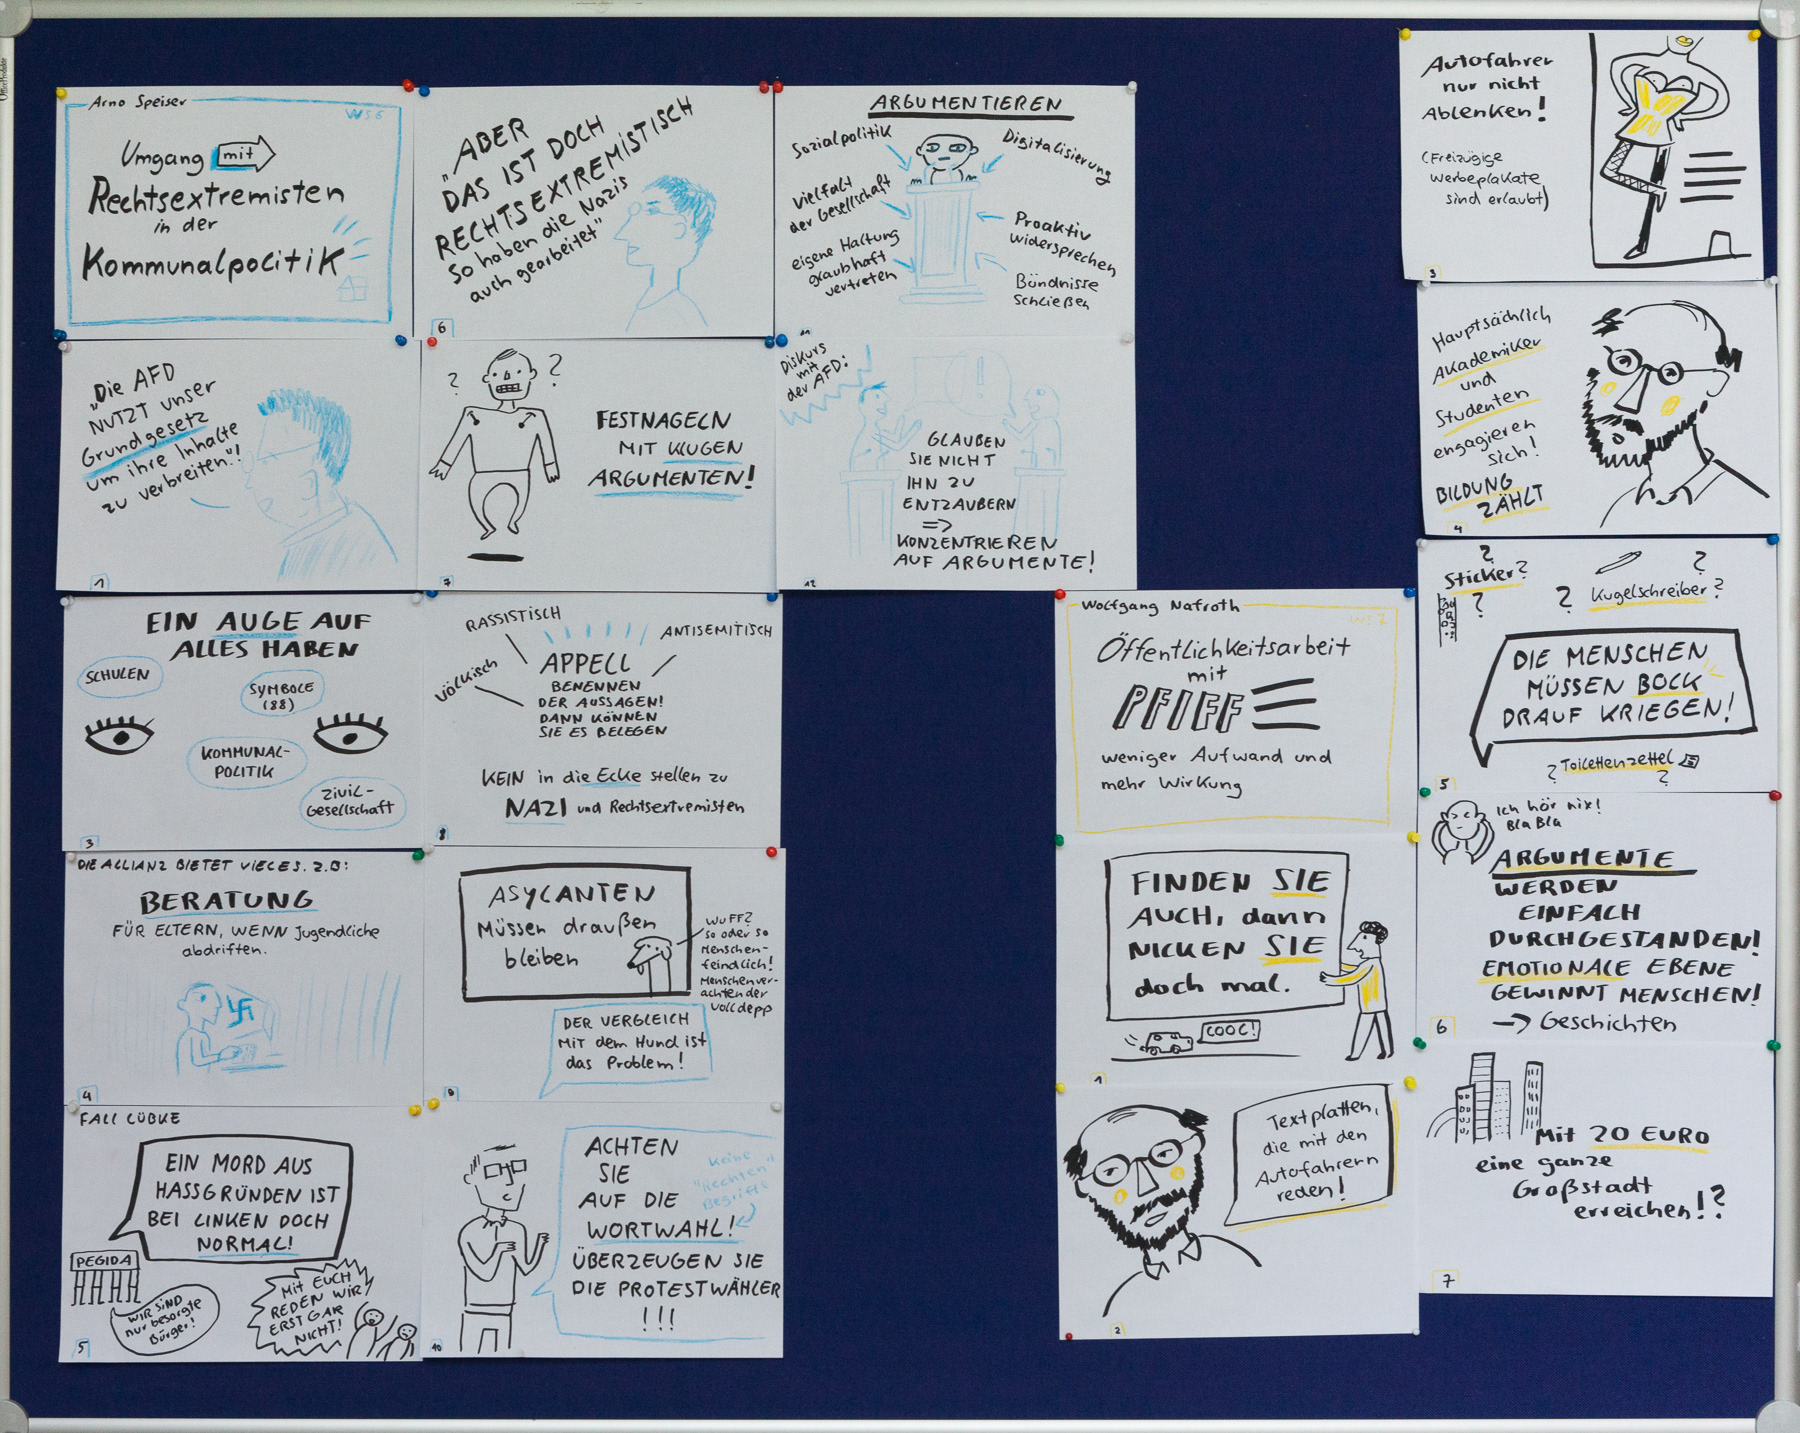 Arno Speiser
WS 6
Umgang mit
Rechtsextremisten
in der
Kommunalpolitik
„Die AFD
NUTZT unser
Grundgesetz
um ihre Inhalte
zu verbreiten"!
1
EIN AUGE AUF
ALLES HABEN
SCHULEN
SYMBOLE
(88)
KOMMUNAL-
POLITIK
ZIVIL-
Gesellschaft
3
DIE ALLIANZ BIETET VIELES. Z.B:
BERATUNG
FÜR ELTERN, WENN Jugendliche
abdriften.
4
FALL LÜBKE
EIN MORD AUS
HASSGRÜNDEN IST
BEI LINKEN DOCH
NORMAL!
PEGIDA
WIR SIND
nur besorgte
Bürger!
Mit EUCH
REDEN WIR
ERST GAR
NICHT!
5
„ABER
DAS IST DOCH
RECHTSEXTREMISTISCH
So haben die Nazis
auch gearbeitet"
6
? ?
FESTNAGELN
MIT KLUGEN
ARGUMENTEN!
7
RASSISTISCH
ANTISEMITISCH
VÖLKISCH
APPELL
BENENNEN
DER AUSSAGEN!
DANN KÖNNEN
SIE ES BELEGEN
KEIN in die Ecke stellen zu
NAZI und Rechtsextremisten
8
ASYLANTEN
Müssen draußen
bleiben
WUFF?
so oder so
Menschen-
feindlich!
Menschenver-
achtender
Volldepp
DER VERGLEICH
Mit dem Hund ist
das Problem!
9
ACHTEN
SIE
AUF DIE
WORTWAHL!
ÜBERZEUGEN SIE
DIE PROTESTWÄHLER
!!!
keine
"Rechten"
Begriffe
10
ARGUMENTIEREN
Sozialpolitik
Digitalisierung
Vielfalt
der Gesellschaft
Proaktiv
widersprechen
eigene Haltung
graubhaft
vertreten
Bündnisse
Schließen
11
Diskurs
mit
der AFD:
GLAUBEN
SIE NICHT
IHN ZU
ENTZAUBERN
=>
KONZENTRIEREN
AUF ARGUMENTE!
12
Wolfgang Nafroth
WS 7
Öffentlichkeitsarbeit
mit
PFIFF
weniger Aufwand und
mehr Wirkung
FINDEN SIE
AUCH, dann
NICKEN SIE
doch mal.
COOL!
1
Textplatten,
die mit den
Autofahrern
reden!
2
Autofahrer
nur nicht
Ablenken!
(Freizügige
Werbeplakate
sind erlaubt)
3
Hauptsächlich
Akademiker
und
Studenten
engagieren
sich!
BILDUNG
ZÄHLT
4
?
Sticker?
?
?
? Kugelschreiber?
DIE MENSCHEN
MÜSSEN BOCK
DRAUF KRIEGEN!
? Toilettenzettel
?
5
Ich hör nix!
Bla Bla
ARGUMENTE
WERDEN
EINFACH
DURCHGESTANDEN!
EMOTIONALE EBENE
GEWINNT MENSCHEN!
→ Geschichten
6
Mit 20 EURO
eine ganze
Großstadt
erreichen!?
7